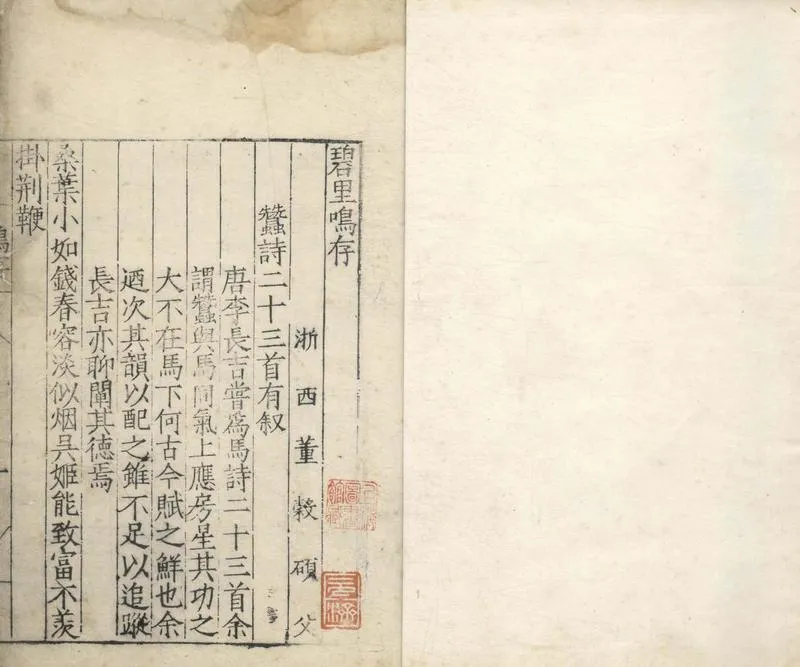 碧里鳴存
浙西董穀碩父
蠶詩二十三首有叙
唐李長吉嘗爲馬詩二十三首余
謂蠶與馬同氣上應房星其功之
大不在馬下何古今賦之鮮也余
迺次其韻以配之雖不足以追蹤
長吉亦聊闡其德焉
桑葉小如錢春容淡似烟吳姬能致富不羨
掛荆鞭